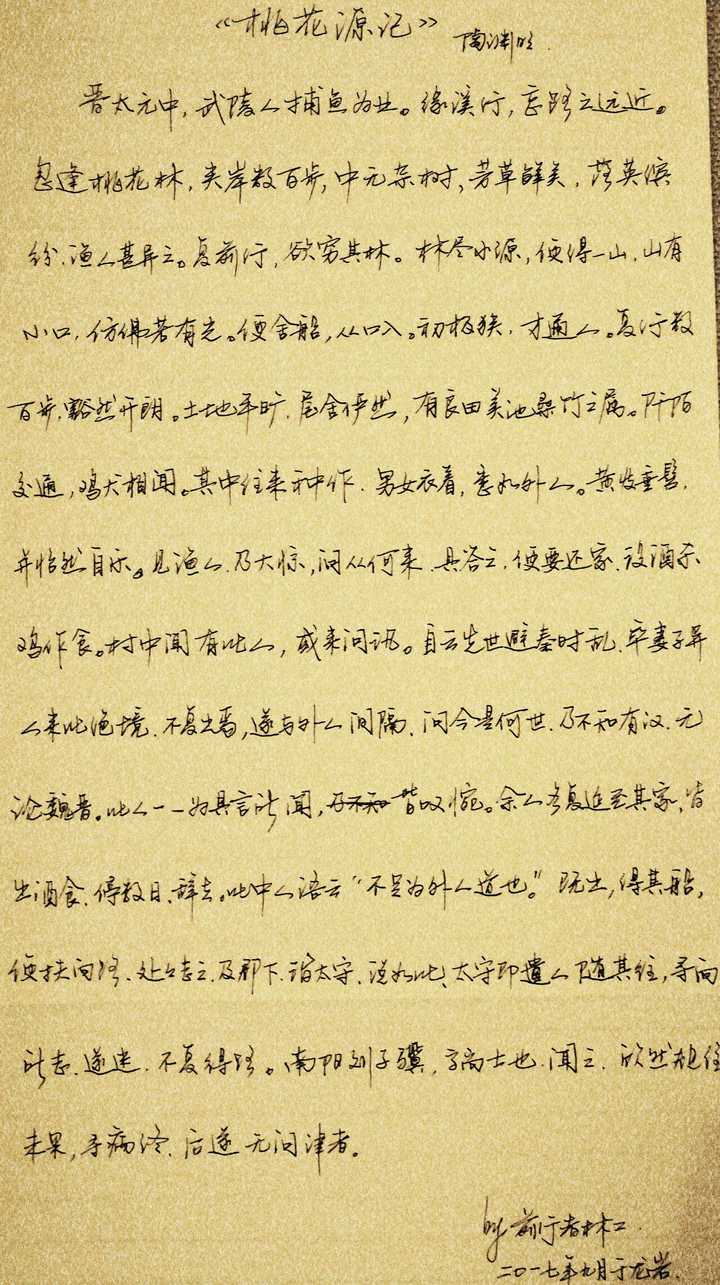 《桃花源记》 陶渊明
晋太元中，武陵人捕鱼为业。缘溪行，忘路之远近。
忽逢桃花林，夹岸数百步，中无杂树，芳草鲜美，落英缤
纷、渔人甚异之。复前行，欲穷其林。林尽水源，便得一山、山有
小口，仿佛若有光。便舍船，从口入。初极狭、才通人。复行数
百步、豁然开朗。土地平旷、屋舍俨然，有良田美池桑竹之属。阡陌
交通，鸡犬相闻。其中往来种作、男女衣着，悉如外人。黄发垂髫、
并怡然自乐。见渔人、乃大惊，问从何来、具答之、便要还家、设酒杀
鸡作食。村中闻有此人，咸来问讯。自云先世避秦时乱、率妻子异
人来此绝境、不复出焉，遂与外人间隔、问今是何世、乃不知有汉、无
论魏晋。此人一一为具言所闻，乃不知皆叹惋。余人各复延至其家、皆
出酒食、停数日、辞去。此中人语云“不足为外人道也。”既出，得其船，
便扶向路、处处志之、及郡下、诣太守、说如此、太守即遣人随其往，寻向
所志、遂迷、不复得路。南阳刘子骥，高士也、闻之、欣然规往
未果，寻病终、后遂无问津者。
by 前行者林工
二〇一七年九月于龙岩.